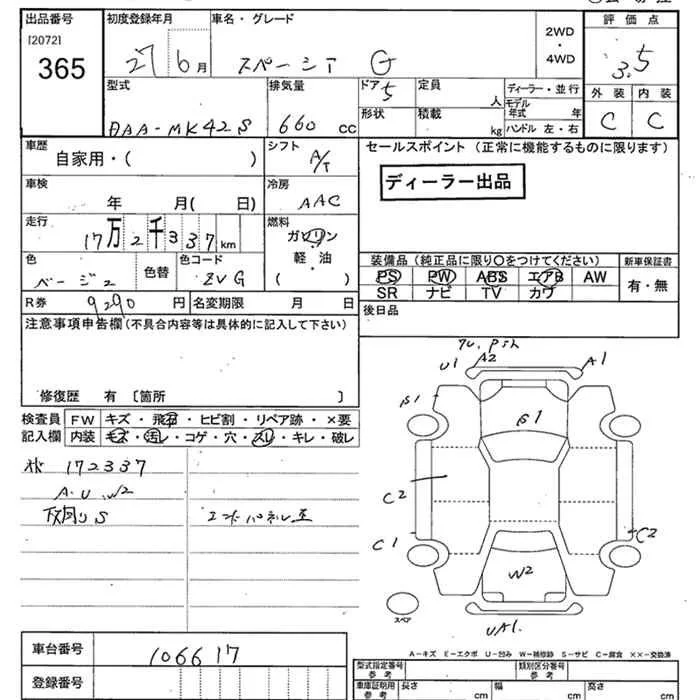 出品番号 初度登録年月 車名・グレード 2WD・4WD 評価点
[2072]
365 27 6月 スペーシア G 3.5
型式 排気量 ドア 5 定員 人 ディーラー・並行 外装 内装
DAA-MK42S 660 cc 形状 積載 kg モデル年式 年 ハンドル 左・右 C C
車歴 自家用・( ) シフト A/T セールスポイント (正常に機能するものに限ります)
車検 年 月( 日) 冷房 AAC ディーラー出品
走行 17万2千337km 燃料 ガソリン・軽油 ( )
色 ベージュ 色替 色コード ZVG
装備品 (純正品に限り○をつけてください) 新車保証書
PS PW ABS エアB AW 有・無
SR ナビ TV カワ
R券 9290円 名変期限 月 日 後日品
注意事項申告欄 (不具合内容等は具体的に記入して下さい)
修復歴 有 〔箇所 〕
検査員 FW キズ・飛石・ヒビ割・リペア跡・×要
記入欄 内装 キズ・汚レ・コゲ・穴・スレ・キレ・破レ
172337
A・U W2
下廻りS エンドパネル歪
U1 A2 A1
B1
B1
C2
C1 C2
W2
スペア
UA1.
A-キズ E-エクボ U-凹み W-補修跡 S-サビ C-腐食 ××-交換済
車台番号 106617
登録番号
型式指定番号 参考 類別区分番号 参考
車庫証明用 参考 長さ cm 幅 cm 高さ cm